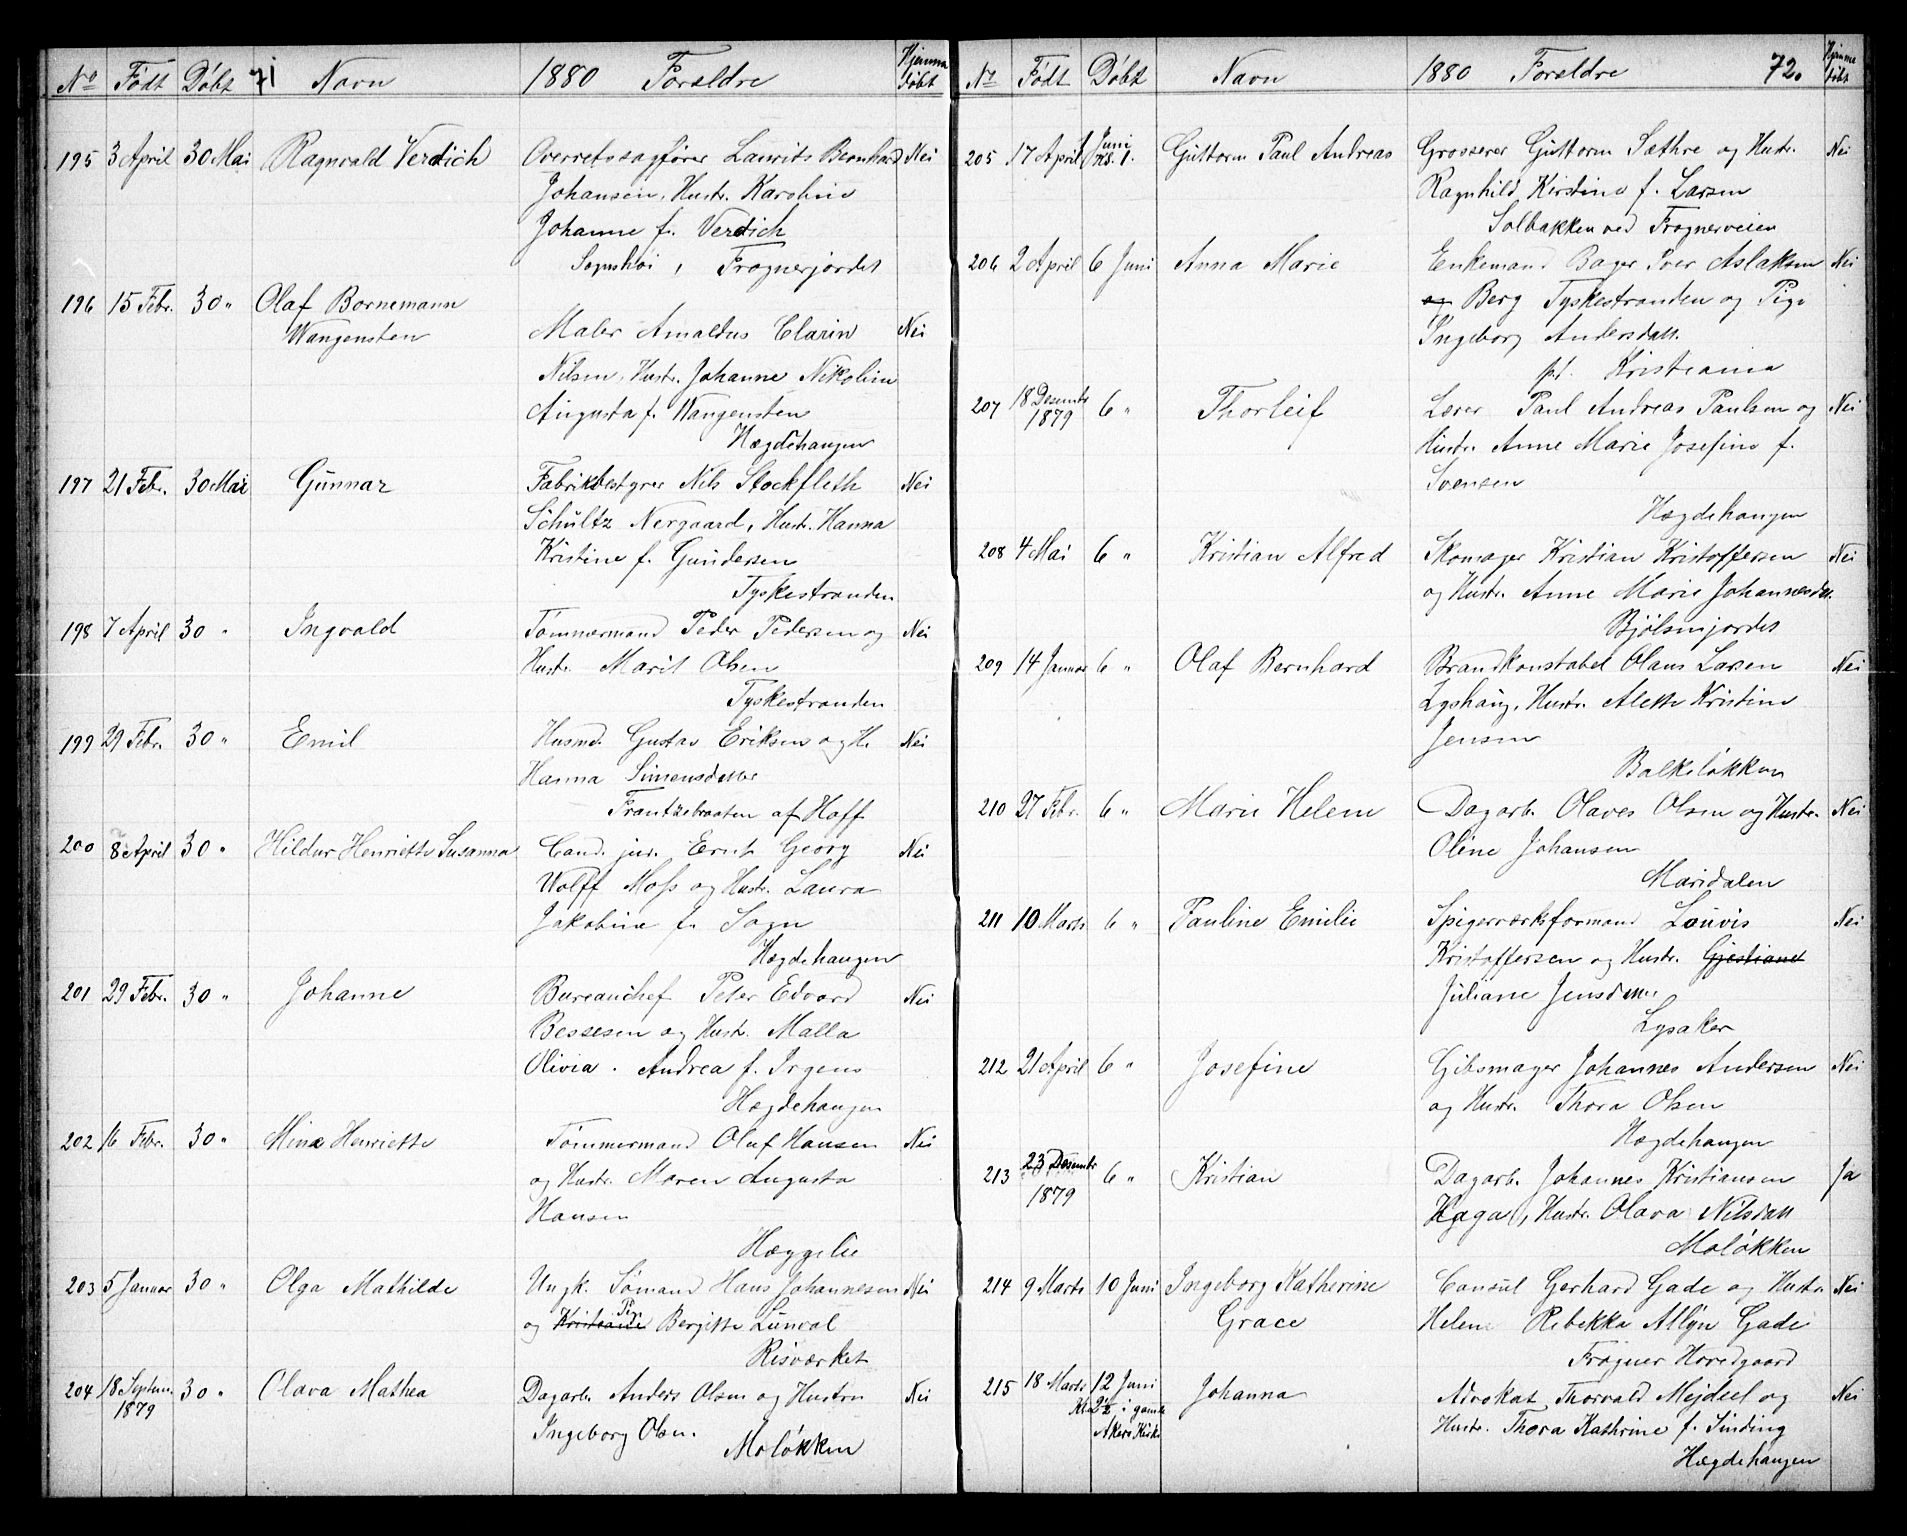 No Födt Döbt 71 Navn 1880 Foreldre Hjemmedöbt
195 3 April 30 Mai Ragnvald Verdich Overretssagförer Laurits Bernhard Nei
Johansen, Hustr. Karoline
Johanne f. Verdich
Sognshöi, Frognerjordet
196 15 Febr. 30 " Olaf Bornemann
Wangensten Maler Arnaldus Clarin Nei
Nilsen, Hustr. Johanne Nikoline
Augusta f. Wangensten
Hægdehaugen
197 21 Febr. 30 Mai Gunnar Fabrikbestyrer Nils Stockfleth Nei
Schultz Nergaard, Hustr. Hanna
Kristine f. Gundersen
Tyskestranden
198 7 April 30 " Ingvald Tömmermand Peder Pedersen og Nei
Hustr. Marit Olsen
Tyskestranden
199 29 Febr. 30 " Emil Husmd. Gustav Eriksen og H. Nei
Hanna Simensdatter
Frantzebraaten af Hoff
200 8 April 30 " Hildur Henriette Susanna Cand. jur. Ernt Georg Nei
Wolff Moss og Hustr. Laura
Jakobine f. Sogn
Hægdehaugen
201 29 Febr. 30 " Johanne Bureauchef Peter Edvard Nei
Bessesen og Hustr. Malla
Olivia Andrea f. Irgens
Hægdehaugen
202 16 Febr. 30 " Mina Henriette Tömmermand Oluf Hansen Nei
og Hustr. Maren Augusta
Hansen
Hæggelie
203 5 Januar 30 " Olga Mathilde Ungk. Sömand Hans Johannesen Nei
og Pige Bergitte Lunval
Risværket
204 18 Septem. 1879 30 " Olava Mathea Dagarb. Anders Olsen og Hustru Nei
Ingeborg Olsn.
Molökken
Nr Födt Döbt Navn 1880 Foreldre 72. Hjemmedöbt
205 17 April Juni 1. Guttorm Paul Andreas Grosserer Guttorm Sæthre og Hustr. Nei
Ragnhild Kirstine f. Larsen
Solbakken ved Frognerveien
206 2 April 6 Juni Anna Marie Enkemand Bager Iver Aslaksen Nei
og Berg Tyskestranden og Pige
Ingeborg Andersdatt.
pt. Kristiania
207 18 Desembr 1879 6 " Thorleif Lærer Paul Andreas Paulsen og Nei
Hustr. Anne Marie Josefine f.
Svensen
Hægdehaugen
208 4 Mai 6 " Kristian Alfred Skomager Kristian Kristoffersen Nei
og Hustr. Anne Marie Johannesdatt.
Bjölsenjordet
209 14 Januar 6 " Olaf Bernhard Brandkonstabel Olaus Larsen Nei
Lyshaug, Hustr. Alette Kristine
Jensen
Balkelökken
210 27 Febr. 6 " Marie Helene Dagarb. Olaves Olsen og Hustr. Nei
Oline Johansen
Maridalen
211 10 Marts 6 " Pauline Emilie Spigerværksformand Louvis Nei
Kristoffersen og Hustr. Gjestiane
Juliane Jensdatter
Lysaker
212 21 April 6 " Josefine Gibsmager Johannes Andersen Nei
og Hustr. Thora Olsen
Hægdehaugen
213 23 Desembr 1879 6 " Kristian Dagarb. Johannes Kristiansen Ja
Haga, Hustr. Olava Nilsdatt
Molökken
214 9 Marts 10 Juni Ingeborg Katherine Consul Gerhard Gade og Hustr. Nei
Grace Helene Rebekka Allyn Gade
Frogner Hovedgaard
215 18 Marts 12 Juni Johanna Advokat Thorvald Mejdell og Nei
Kl. 2½ i gamle Hustr. Thora Kathrine f. Sinding
Akers Kirke Hægdehaugen